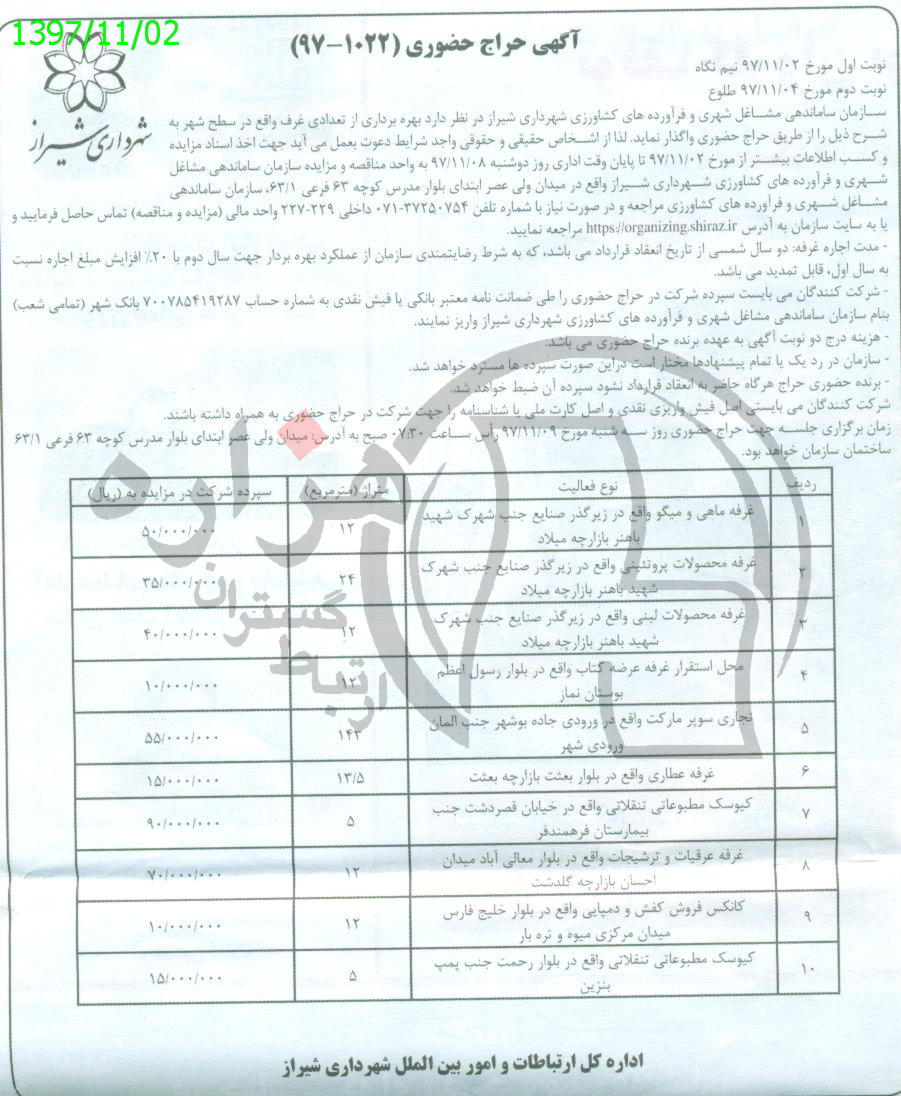 1397/11/02
آگهی حراج حضوری (۱۰۲۲-۹۷)
شهرداری شیراز
نوبت اول مورخ ۹۷/۱۱/۰۲ نیم نگاه
نوبت دوم مورخ ۹۷/۱۱/۰۴ طلوع
سازمان ساماندهی مشاغل شهری و فرآورده های کشاورزی شهرداری شیراز در نظر دارد بهره برداری از تعدادی غرف واقع در سطح شهر به
شرح ذیل را از طریق حراج حضوری واگذار نماید. لذا از اشخاص حقیقی و حقوقی واجد شرایط دعوت بعمل می آید جهت اخذ اسناد مزایده
و کسب اطلاعات بیشتر از مورخ ۹۷/۱۱/۰۲ تا پایان وقت اداری روز دوشنبه ۹۷/۱۱/۰۸ به واحد مناقصه و مزایده سازمان ساماندهی مشاغل
شهری و فرآورده های کشاورزی شهرداری شیراز واقع در میدان ولی عصر ابتدای بلوار مدرس کوچه ۶۳ فرعی ۶۳/۱، سازمان ساماندهی
مشاغل شهری و فرآورده های کشاورزی مراجعه و در صورت نیاز با شماره تلفن ۳۷۲۵۰۷۵۴-۰۷۱ داخلی ۲۲۹-۲۲۷ واحد مالی (مزایده و مناقصه) تماس حاصل فرمایید و
یا به سایت سازمان به آدرس https://organizing.shiraz.ir مراجعه نمایید.
- مدت اجاره غرفه: دو سال شمسی از تاریخ انعقاد قرارداد می باشد، که به شرط رضایتمندی سازمان از عملکرد بهره بردار جهت سال دوم با ۲۰٪ افزایش مبلغ اجاره نسبت
به سال اول، قابل تمدید می باشد.
- شرکت کنندگان می بایست سپرده شرکت در حراج حضوری را طی ضمانت نامه معتبر بانکی یا فیش نقدی به شماره حساب ۷۰۰۷۸۵۴۱۹۲۸۷ بانک شهر (تمامی شعب)
بنام سازمان ساماندهی مشاغل شهری و فرآورده های کشاورزی شهرداری شیراز واریز نمایند.
- هزینه درج دو نوبت آگهی به عهده برنده حراج حضوری می باشد.
- سازمان در رد یک یا تمام پیشنهادها مختار است دراین صورت سپرده ها مسترد خواهد شد.
- برنده حضوری حراج هرگاه حاضر به انعقاد قرارداد نشود سپرده آن ضبط خواهد شد.
شرکت کنندگان می بایستی اصل فیش واریزی نقدی و اصل کارت ملی یا شناسنامه را جهت شرکت در حراج حضوری به همراه داشته باشند.
زمان برگزاری جلسه جهت حراج حضوری روز سه شنبه مورخ ۹۷/۱۱/۰۹ رأس ساعت ۰۷:۳۰ صبح به آدرس: میدان ولی عصر ابتدای بلوار مدرس کوچه ۶۳ فرعی ۶۳/۱
ساختمان سازمان خواهد بود.
ردیف نوع فعالیت متراژ (مترمربع) سپرده شرکت در مزایده به (ریال)
۱ غرفه ماهی و میگو واقع در زیرگذر صنایع جنب شهرک شهید ۱۲ ۵۰/۰۰۰/۰۰۰
باهنر بازارچه میلاد
۲ غرفه محصولات پروتئینی واقع در زیرگذر صنایع جنب شهرک ۲۴ ۳۵/۰۰۰/۰۰۰
شهید باهنر بازارچه میلاد
۳ غرفه محصولات لبنی واقع در زیرگذر صنایع جنب شهرک ۱۲ ۴۰/۰۰۰/۰۰۰
شهید باهنر بازارچه میلاد
۴ محل استقرار غرفه عرضه کتاب واقع در بلوار رسول اعظم ۱۲ ۱۰/۰۰۰/۰۰۰
بوستان نماز
۵ تجاری سوپر مارکت واقع در ورودی جاده بوشهر جنب المان ۱۴۳ ۵۵/۰۰۰/۰۰۰
ورودی شهر
۶ غرفه عطاری واقع در بلوار بعثت بازارچه بعثت ۱۳/۵ ۱۵/۰۰۰/۰۰۰
۷ کیوسک مطبوعاتی تنقلاتی واقع در خیابان قصردشت جنب ۵ ۹۰/۰۰۰/۰۰۰
بیمارستان فرهمندفر
۸ غرفه عرقیات و ترشیجات واقع در بلوار معالی آباد میدان ۱۲ ۷۰/۰۰۰/۰۰۰
احسان بازارچه گلدشت
۹ کانکس فروش کفش و دمپایی واقع در بلوار خلیج فارس ۱۲ ۱۰/۰۰۰/۰۰۰
میدان مرکزی میوه و تره بار
۱۰ کیوسک مطبوعاتی تنقلاتی واقع در بلوار رحمت جنب پمپ ۵ ۱۵/۰۰۰/۰۰۰
بنزین
هزاره
گستران
ارتباط
اداره کل ارتباطات و امور بین الملل شهرداری شیراز